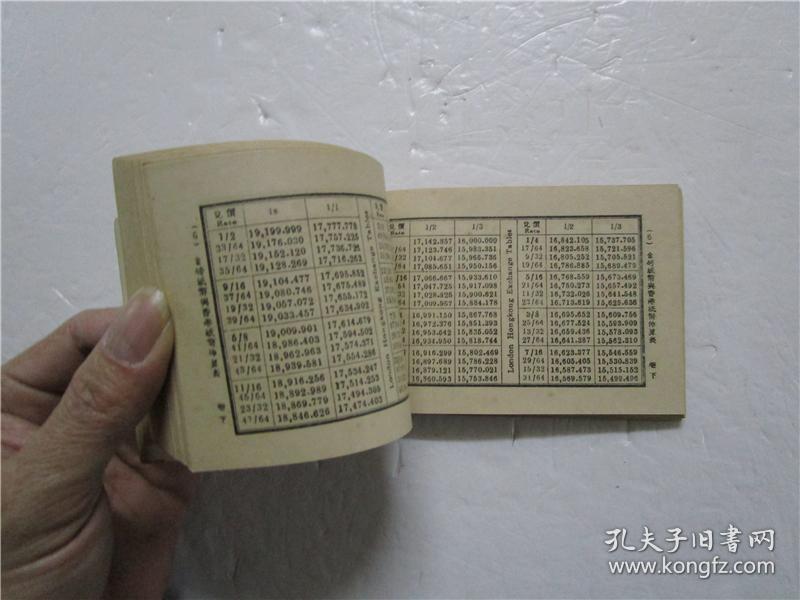 兌價 Rate 1s 1/1
1/2 19,199.999 17,777.778
33/64 19,176.030 17,757.225
17/32 19,152.120 17,736.721
35/64 19,128.269 17,716.263
9/16 19,104.477 17,695.852
37/64 19,080.746 17,675.489
19/32 19,057.072 17,655.172
39/64 19,033.457 17,634.902
5/8 19,009.901 17,614.679
41/64 18,986.404 17,594.502
21/32 18,962.963 17,574.371
43/64 18,939.581 17,554.286
11/16 18,916.256 17,534.247
45/64 18,892.989 17,514.253
23/32 18,869.779 17,494.305
47/64 18,846.626 17,474.403
London Hongkong Exchange Tables
1/2 1/3
17,142.857 16,000.000
17,123.746 15,983.351
17,104.677 15,966.733
17,085.651 15,950.156
17,066.667 15,933.610
17,047.725 15,917.098
17,028.825 15,900.621
17,009.967 15,884.178
16,991.150 15,867.768
16,972.376 15,851.393
16,953.642 15,835.051
16,934.950 15,818.744
16,916.299 15,802.469
16,897.689 15,786.228
16,879.121 15,770.021
16,860.593 15,753.846
London Hongkong Exchange Tables
兌價 Rate 1/2 1/3
1/4 16,842.105 15,737.705
17/64 16,823.658 15,721.596
9/32 16,805.252 15,705.521
19/64 16,786.885 15,689.479
5/16 16,768.559 15,673.469
21/64 16,750.273 15,657.492
11/32 16,732.026 15,641.548
23/64 16,713.819 15,625.636
3/8 16,695.652 15,609.756
25/64 16,677.524 15,593.909
13/32 16,659.436 15,578.093
27/64 16,641.387 15,562.310
7/16 16,623.377 15,546.559
29/64 16,605.405 15,530.839
15/32 16,587.473 15,515.152
31/64 16,569.579 15,499.496
孔夫子旧书网
www.kongfz.com